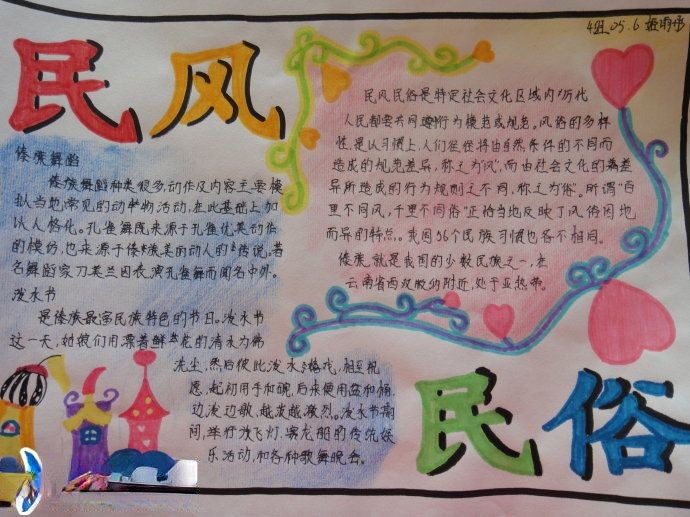 民风
4班 05.6
民风民俗是特定社会文化区域内历代
人民都要共同遵守行为模范或规范。风俗的多样
性,是以习惯上,人们往往将由自然条件的不同而
造成的规范差异,称之为“风”,而由社会文化的差
异所造成的行为规则之不同,称之为“俗”。所谓“百
里不同风,千里不同俗”正恰当地反映了风俗因地
而异的特点。我国56个民族习惯也各不相同。
傣族,就是我国的少数民族之一,在
云南省西双版纳附近,处于亚热带。
傣族舞蹈
傣族舞蹈种类很多,动作及内容主要模
拟当地常见的动物活动,在此基础上加
以人格化。孔雀舞既来源于孔雀优美动作
的模仿,也来源于傣族美的动人的传说,著
名舞蹈家刀美兰因表演孔雀舞而闻名中外。
泼水节
是傣族最富民族特色的节日。泼水节
这一天,她们用漂着鲜花的清水为佛
洗尘,然后彼此泼水嬉戏,相互祝
愿,起初用手和碗,后来使用盆和桶,
边泼边歌,越来越激烈。泼水节期
间,举行放飞灯,赛龙船的传统娱
乐活动,和各种歌舞晚会。
民俗